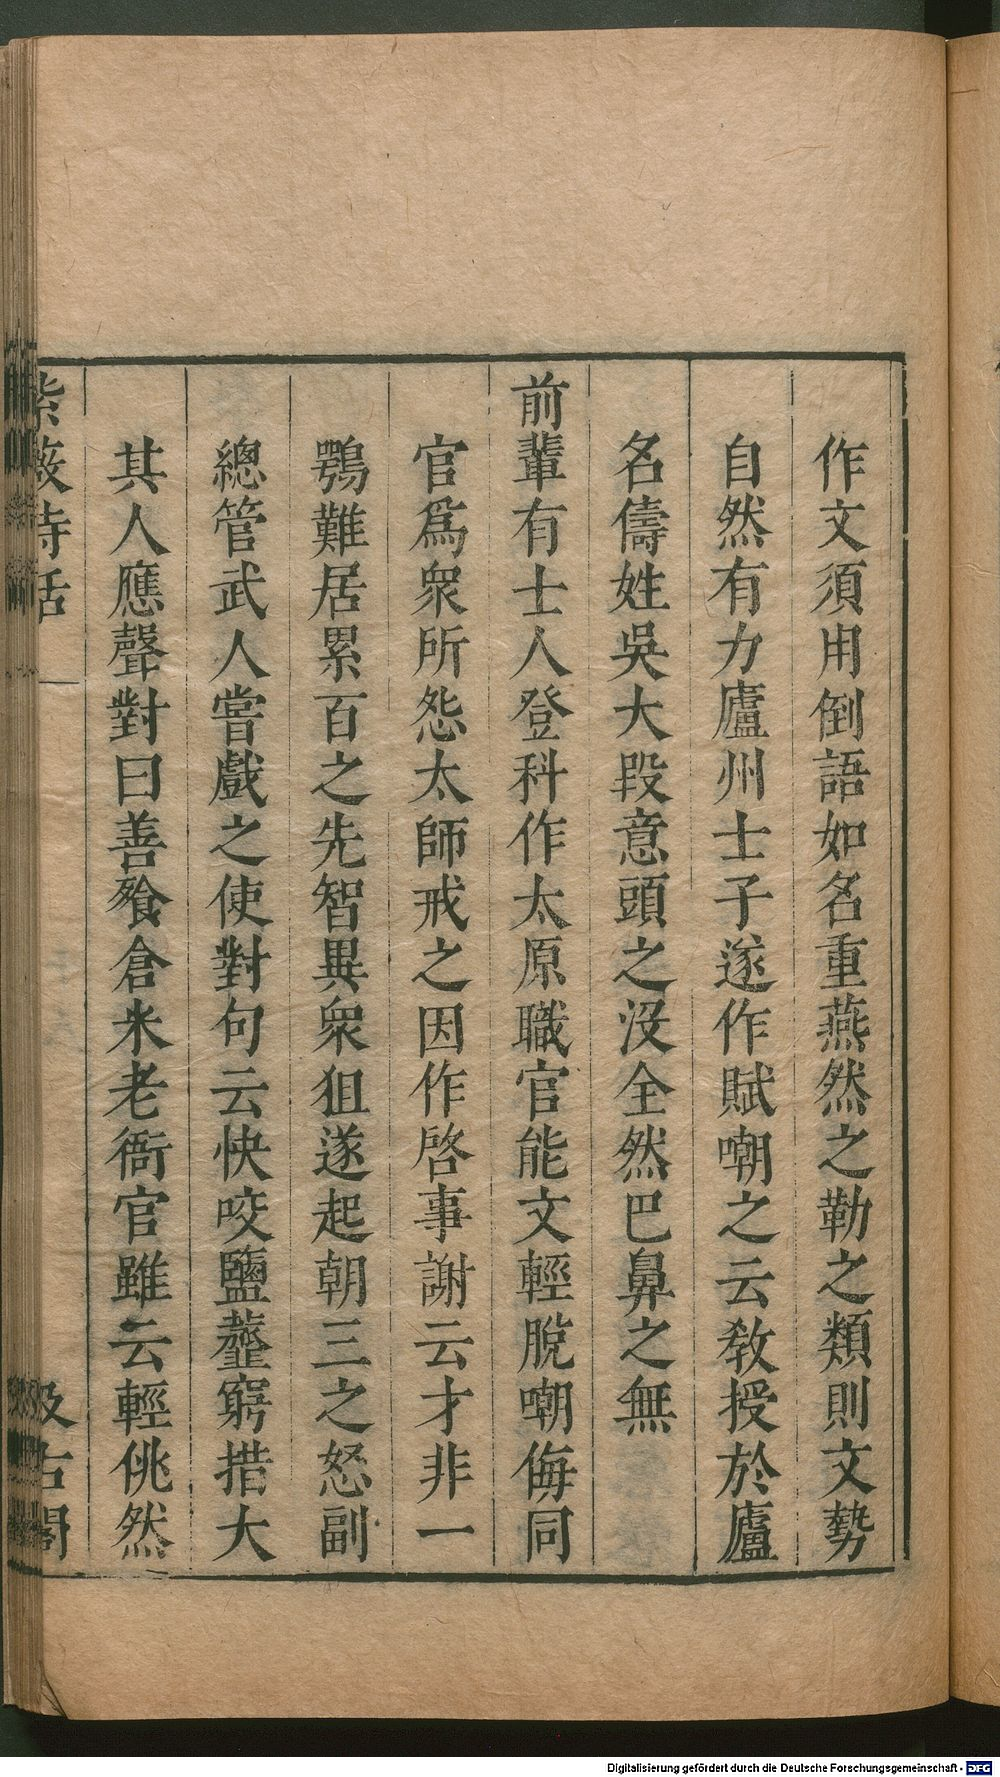 作文須用倒語如名重燕然之勒之類則文勢
自然有力廬州士子遂作賦嘲之云教授於廬
名儔姓吳大段意頭之沒全然巴鼻之無
前輩有士人登科作太原職官能文輕脫嘲侮同
官爲衆所怨太師戒之因作啓事謝云才非一
鶚難居累百之先智異衆狙遂起朝三之怒副
總管武人嘗戲之使對句云快咬鹽虀窮措大
其人應聲對曰善飱倉米老衙官雖云輕佻然
紫薇詩話
汲古閣
Digitalisierung gefördert durch die Deutsche Forschungsgemeinschaft - DFG